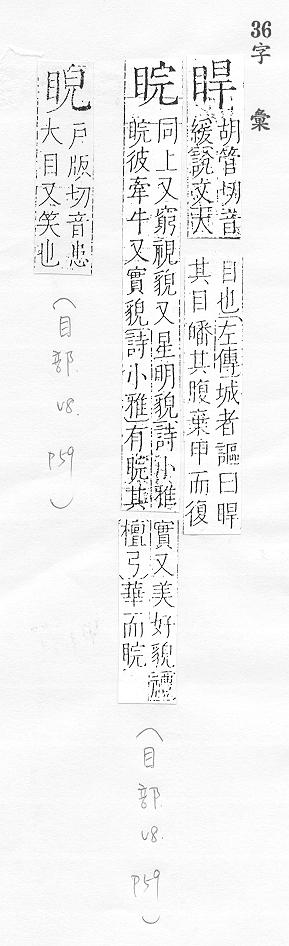 36
字彙
睅
胡管切音
緩說文大
目也左傳城者謳曰睅
其目皤其腹棄甲而復
睆
同上又窮視貌又星明貌詩小雅
睆彼牽牛又實貌詩小雅有睆其
實又美好貌禮
檀弓華而睆
(目部 v8. p59)
睍
戶版切音患
大目又笑也
(目部 v8. p59)